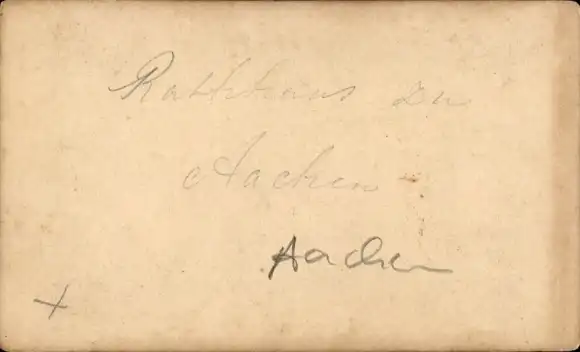 Rathhaus zu
Aachen
Aachen
x